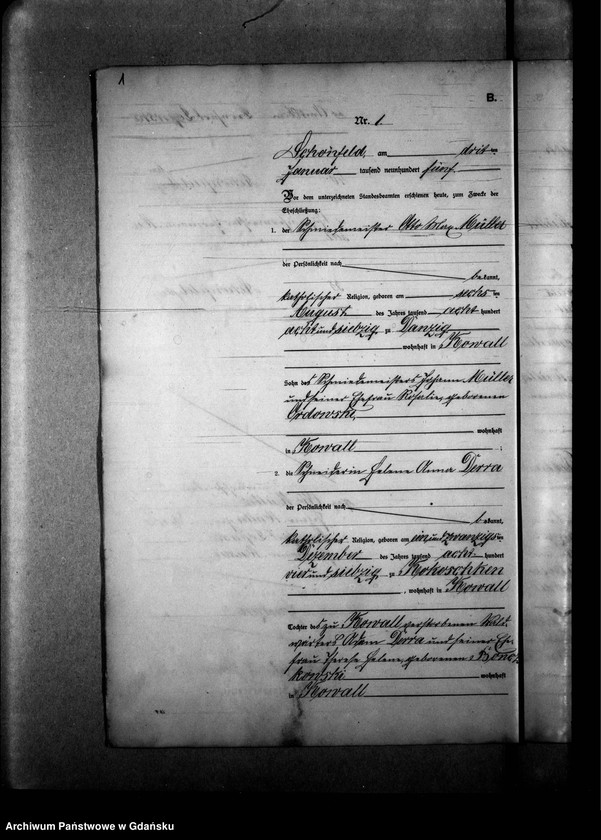 1
B.
Nr. 1.
Schönfeld, am dritten
Januar tausend neunhundert fünf
Vor dem unterzeichneten Standesbeamten erschienen heute, zum Zwecke der
Eheschließung:
1. der Schmiedemeister Otto Max Müller
der Persönlichkeit nach
bekannt,
katholischer Religion, geboren am sechsten
August des Jahres tausend acht hundert
achtundsiebzig zu Danzig
wohnhaft in Kowall
Sohn des Schmiedemeisters Johann Müller
und seiner Ehefrau Rosalie, geborenen
Ordowski,
wohnhaft
in Kowall ;
2. die Schneiderin Helene Anna Dorra
der Persönlichkeit nach
bekannt,
katholischer Religion, geboren am einundzwanzigsten
Dezember des Jahres tausend acht hundert
vierundsiebzig zu Kokoschken
, wohnhaft in Kowall
Tochter des zu Kowall verstorbenen Wald-
wärters Adam Dorra und seiner Ehe-
frau Therese Helene, geborenen
kowski wohnhaft
in Kowall
Archiwum Państwowe w Gdańsku